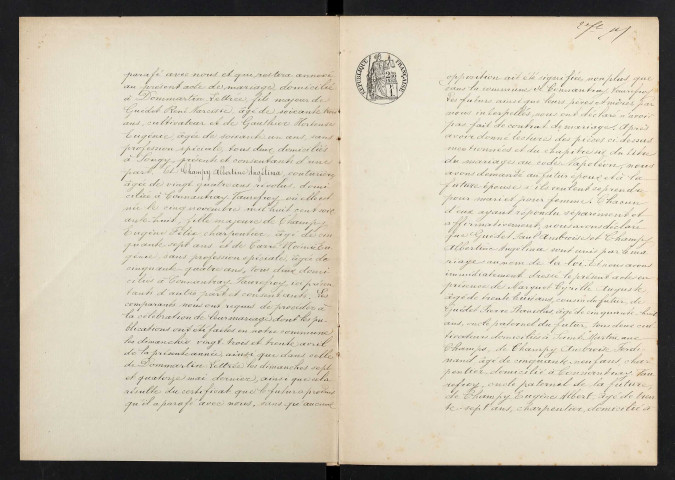 parafé avec nous et qui restera annexé
au présent acte de mariage, domicilié
à Dommartin Lettrée, fils majeur de
Guedet René Narcisse, âgé de soixante trois
ans, cultivateur et de Gauthier Hortense
Eugénie, âgée de soixante un ans, sans
profession spéciale, tous deux domiciliés
à Songy, présents et consentants d'une
part, et Champy Albertine Angelina, couturière,
âgée de vingt quatre ans révolus, domi-
ciliée à Coussantray Vaurefroy, où elle est
née le cinq novembre mil huit cent soi
ante huit, fille majeure de Champy
Eugène Félix charpentier, âgé de cin-
quante sept ans et de Carré Eu-
génie, sans profession spéciale, âgée de
cinquante quatre ans, tous deux domi-
ciliés à Coussantray Vaurefroy, ici présen
tants d'autre part et consentants, les
comparants nous ont requis de procéder à
la célébration de leur mariage dont les pu-
blications ont été faites en notre commune
les dimanches vingt trois et trente avril
de la présente année, ainsi que dans celle
de Dommartin Lettrée les dimanches sept
et quatorze mai dernier, ainsi que cela
résulte du certificat que le futur a produit
qu'il a parafé avec nous, sans qu'aucune
RÉPUBLIQUE FRANÇAISE
opposition ait été signifiée, non plus que
dans la commune de Coussantray Vaurefroy
Les futurs ainsi que leurs pères et mères par
nous interpellés, nous ont déclaré n'avoir
pas fait de contrat de mariage. Après
avoir donné lecture des pièces ci dessus
mentionnées et du chapitre six du titre
du mariage au code Napoléon, nous
avons demandé au futur époux et à la
future épouse s'ils veulent se prendre
pour mari et pour femme, chacun
d'eux ayant répondu séparément et
affirmativement, nous avons déclaré
que Guedet Paul Ambroise et Champy
Albertine Angelina sont unis par le ma-
riage au nom de la loi et nous avons
immédiatement dressé le présent acte en
présence de Marquet Cyrille Auguste
âgé de trente huit ans, cousin du futur, de
Guedet Pierre Stanislas, âgé de cinquante huit
ans, oncle paternel du futur, tous deux cul-
tivateurs domiciliés à Saint Martin aux
Champs, de Champy Ambroise Ferdi-
nand, âgé de cinquante neuf ans, char-
pentier, domicilié à Coussantray Vau
refroy, oncle paternel de la future,
de Champy Eugène Albert, âgé de tren
te sept ans, charpentier, domicilié à